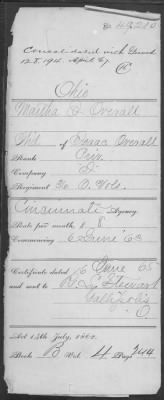 Consolidated with General
128,914. April 67
Ohio
Martha O. Overall
Wid of Isaac Overall
Rank Priv
Company D
Regiment O. Vols.
Cincinnati Agency
Rate per month, $ 8
Commencing 6 June 63
Certificate dated 6 June 65
and sent to Stewart
Gallipolis
O
Act 14th July, 1862.
Book B Vol. 4 Page 244